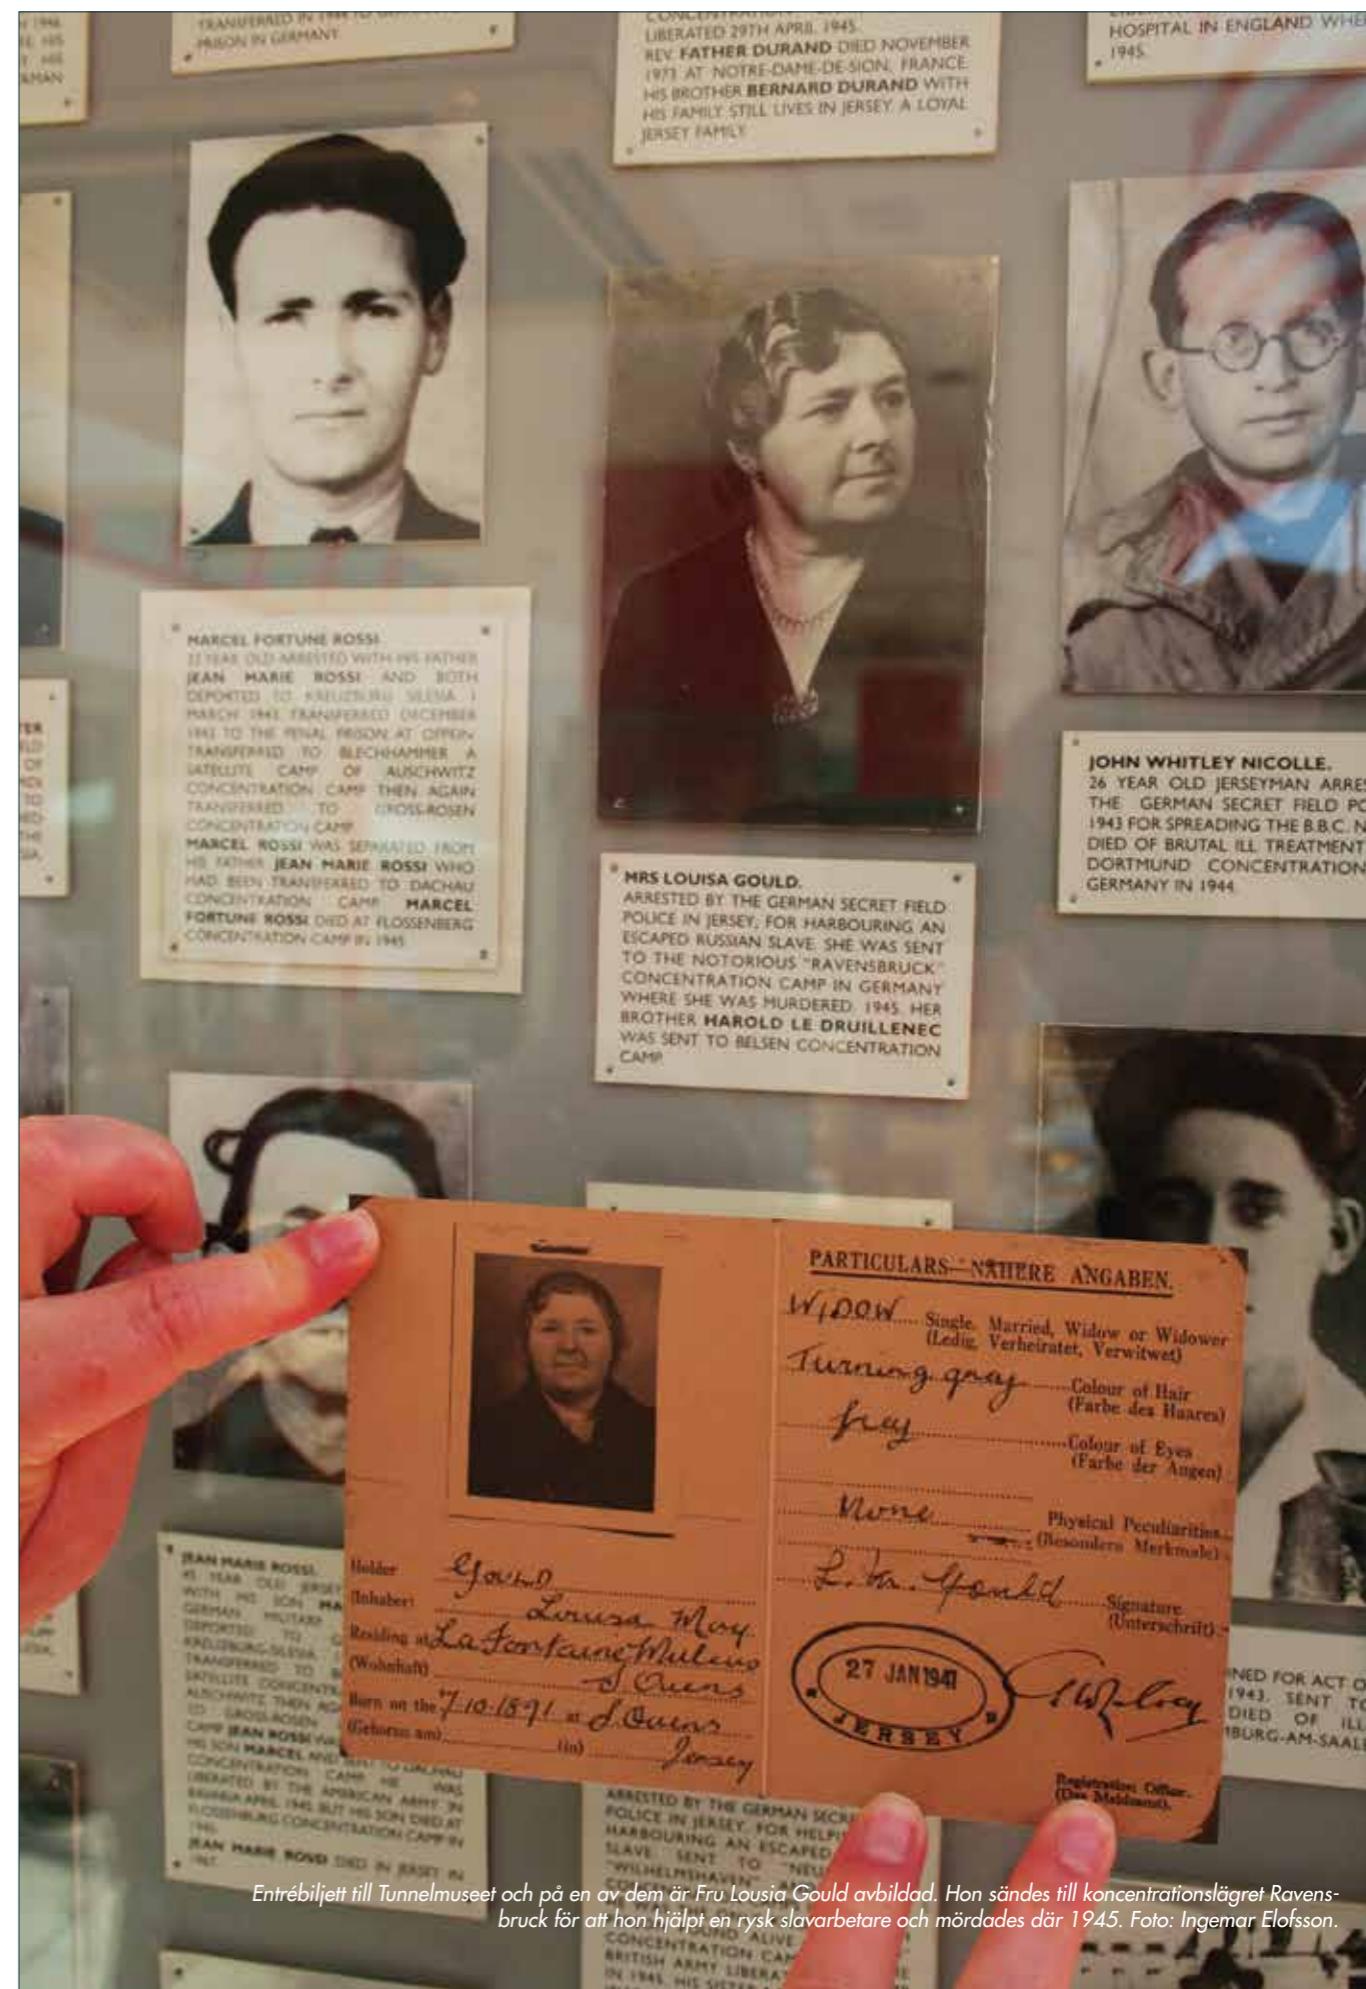 TRANSFERRED IN 1944 TO
PRISON IN GERMANY.
LIBERATED 29TH APRIL 1945.
REV. FATHER DURAND DIED NOVEMBER
1973 AT NOTRE-DAME-DE-SION, FRANCE.
HIS BROTHER BERNARD DURAND WITH
HIS FAMILY STILL LIVES IN JERSEY. A LOYAL
JERSEY FAMILY
HOSPITAL IN ENGLAND
1945.
MARCEL FORTUNE ROSSI
YEAR OLD ARRESTED WITH HIS FATHER
JEAN MARIE ROSSI AND BOTH
DEPORTED TO KREUZBURG SILESIA
MARCH 1943 TRANSFERRED DECEMBER
1943 TO THE PENAL PRISON AT
TRANSFERRED TO BLECHHAMMER A
SATELLITE CAMP OF AUSCHWITZ
CONCENTRATION CAMP THEN AGAIN
TRANSFERRED TO GROSS-ROSEN
CONCENTRATION CAMP
MARCEL ROSSI WAS SEPARATED FROM
HIS FATHER JEAN MARIE ROSSI WHO
HAD BEEN TRANSFERRED TO DACHAU
CONCENTRATION CAMP. MARCEL
FORTUNE ROSSI DIED AT FLOSSENBERG
CONCENTRATION CAMP IN 1945
MRS LOUISA GOULD.
ARRESTED BY THE GERMAN SECRET FIELD
POLICE IN JERSEY, FOR HARBOURING AN
ESCAPED RUSSIAN SLAVE. SHE WAS SENT
TO THE NOTORIOUS "RAVENSBRUCK"
CONCENTRATION CAMP IN GERMANY
WHERE SHE WAS MURDERED. 1945. HER
BROTHER HAROLD LE DRUILLENEC
WAS SENT TO BELSEN CONCENTRATION
CAMP.
JOHN WHITLEY NICOLLE.
26 YEAR OLD JERSEYMAN
THE GERMAN SECRET FIELD
1943 FOR SPREADING THE B.B.C.
DIED OF BRUTAL ILL TREATMENT
DORTMUND CONCENTRATION
GERMANY IN 1944
PARTICULARS NÄHERE ANGABEN.
WIDOW Single, Married, Widow or Widower
(Ledig, Verheiratet, Verwitwet)
Turning gray Colour of Hair
(Farbe des Haares)
Colour of Eyes
(Farbe der Augen)
None Physical Peculiarities
(Besondere Merkmale)
L. M. Gould Signature
(Unterschrift)
27 JAN 1941
JERSEY
Registration Officer.
(Das Meldeamt).
Holder Gould
(Inhaber) Louisa May
Residing at La Fontaine
(Wohnhaft) S Ouens
Born on the 7-10-1891 at S. Ouens
(Geboren am) (in) Jersey
JEAN MARIE ROSSI.
45 YEAR OLD
WITH HIS SON
GERMAN MILITARY
DEPORTED TO
KREUZBURG-SILESIA
TRANSFERRED TO
SATELLITE
AUSCHWITZ THEN
TO GROSS-ROSEN
CAMP JEAN ROSSI
HIS SON MARCEL AND SENT TO DACHAU
CONCENTRATION CAMP HE WAS
LIBERATED BY THE AMERICAN ARMY IN
BAVARIA APRIL 1945 BUT HIS SON DIED AT
FLOSSENBURG CONCENTRATION CAMP IN
1945.
JEAN MARIE ROSSI DIED IN JERSEY IN
ARRESTED BY THE GERMAN
POLICE IN JERSEY, FOR
HARBOURING AN ESCAPED
SLAVE SENT TO
"WILHELMSHAVEN"
ALIVE
CONCENTRATION
BRITISH ARMY
IN 1945. HIS SISTER
FOR ACT OF
1943. SENT TO
DIED OF
Entrébiljett till Tunnelmuseet och på en av dem är Fru Lousia Gould avbildad. Hon sändes till koncentrationslägret Ravens-
bruck för att hon hjälpt en rysk slavarbetare och mördades där 1945. Foto: Ingemar Elofsson.